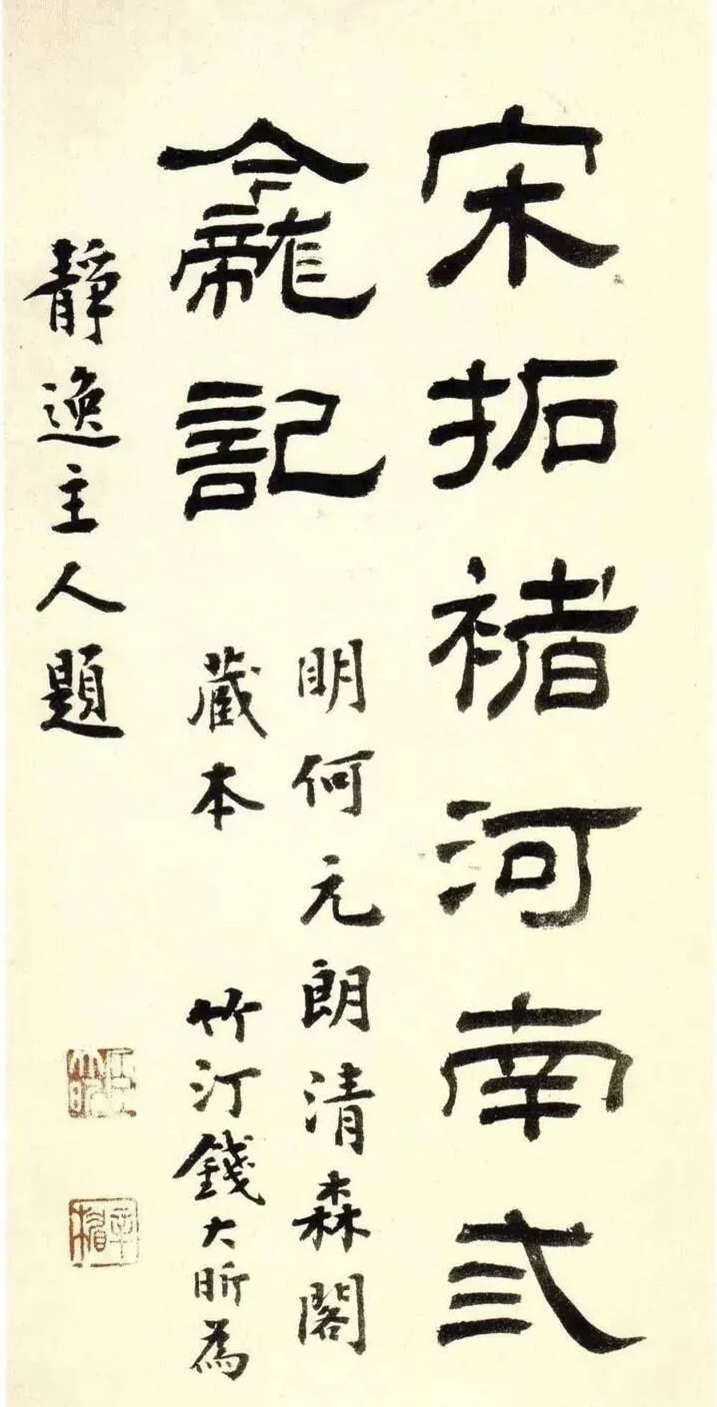 宋拓褚河南弎
龕記
明何元朗清森閣
藏本 竹汀錢大昕為
靜逸主人題
臣大昕
辛楣